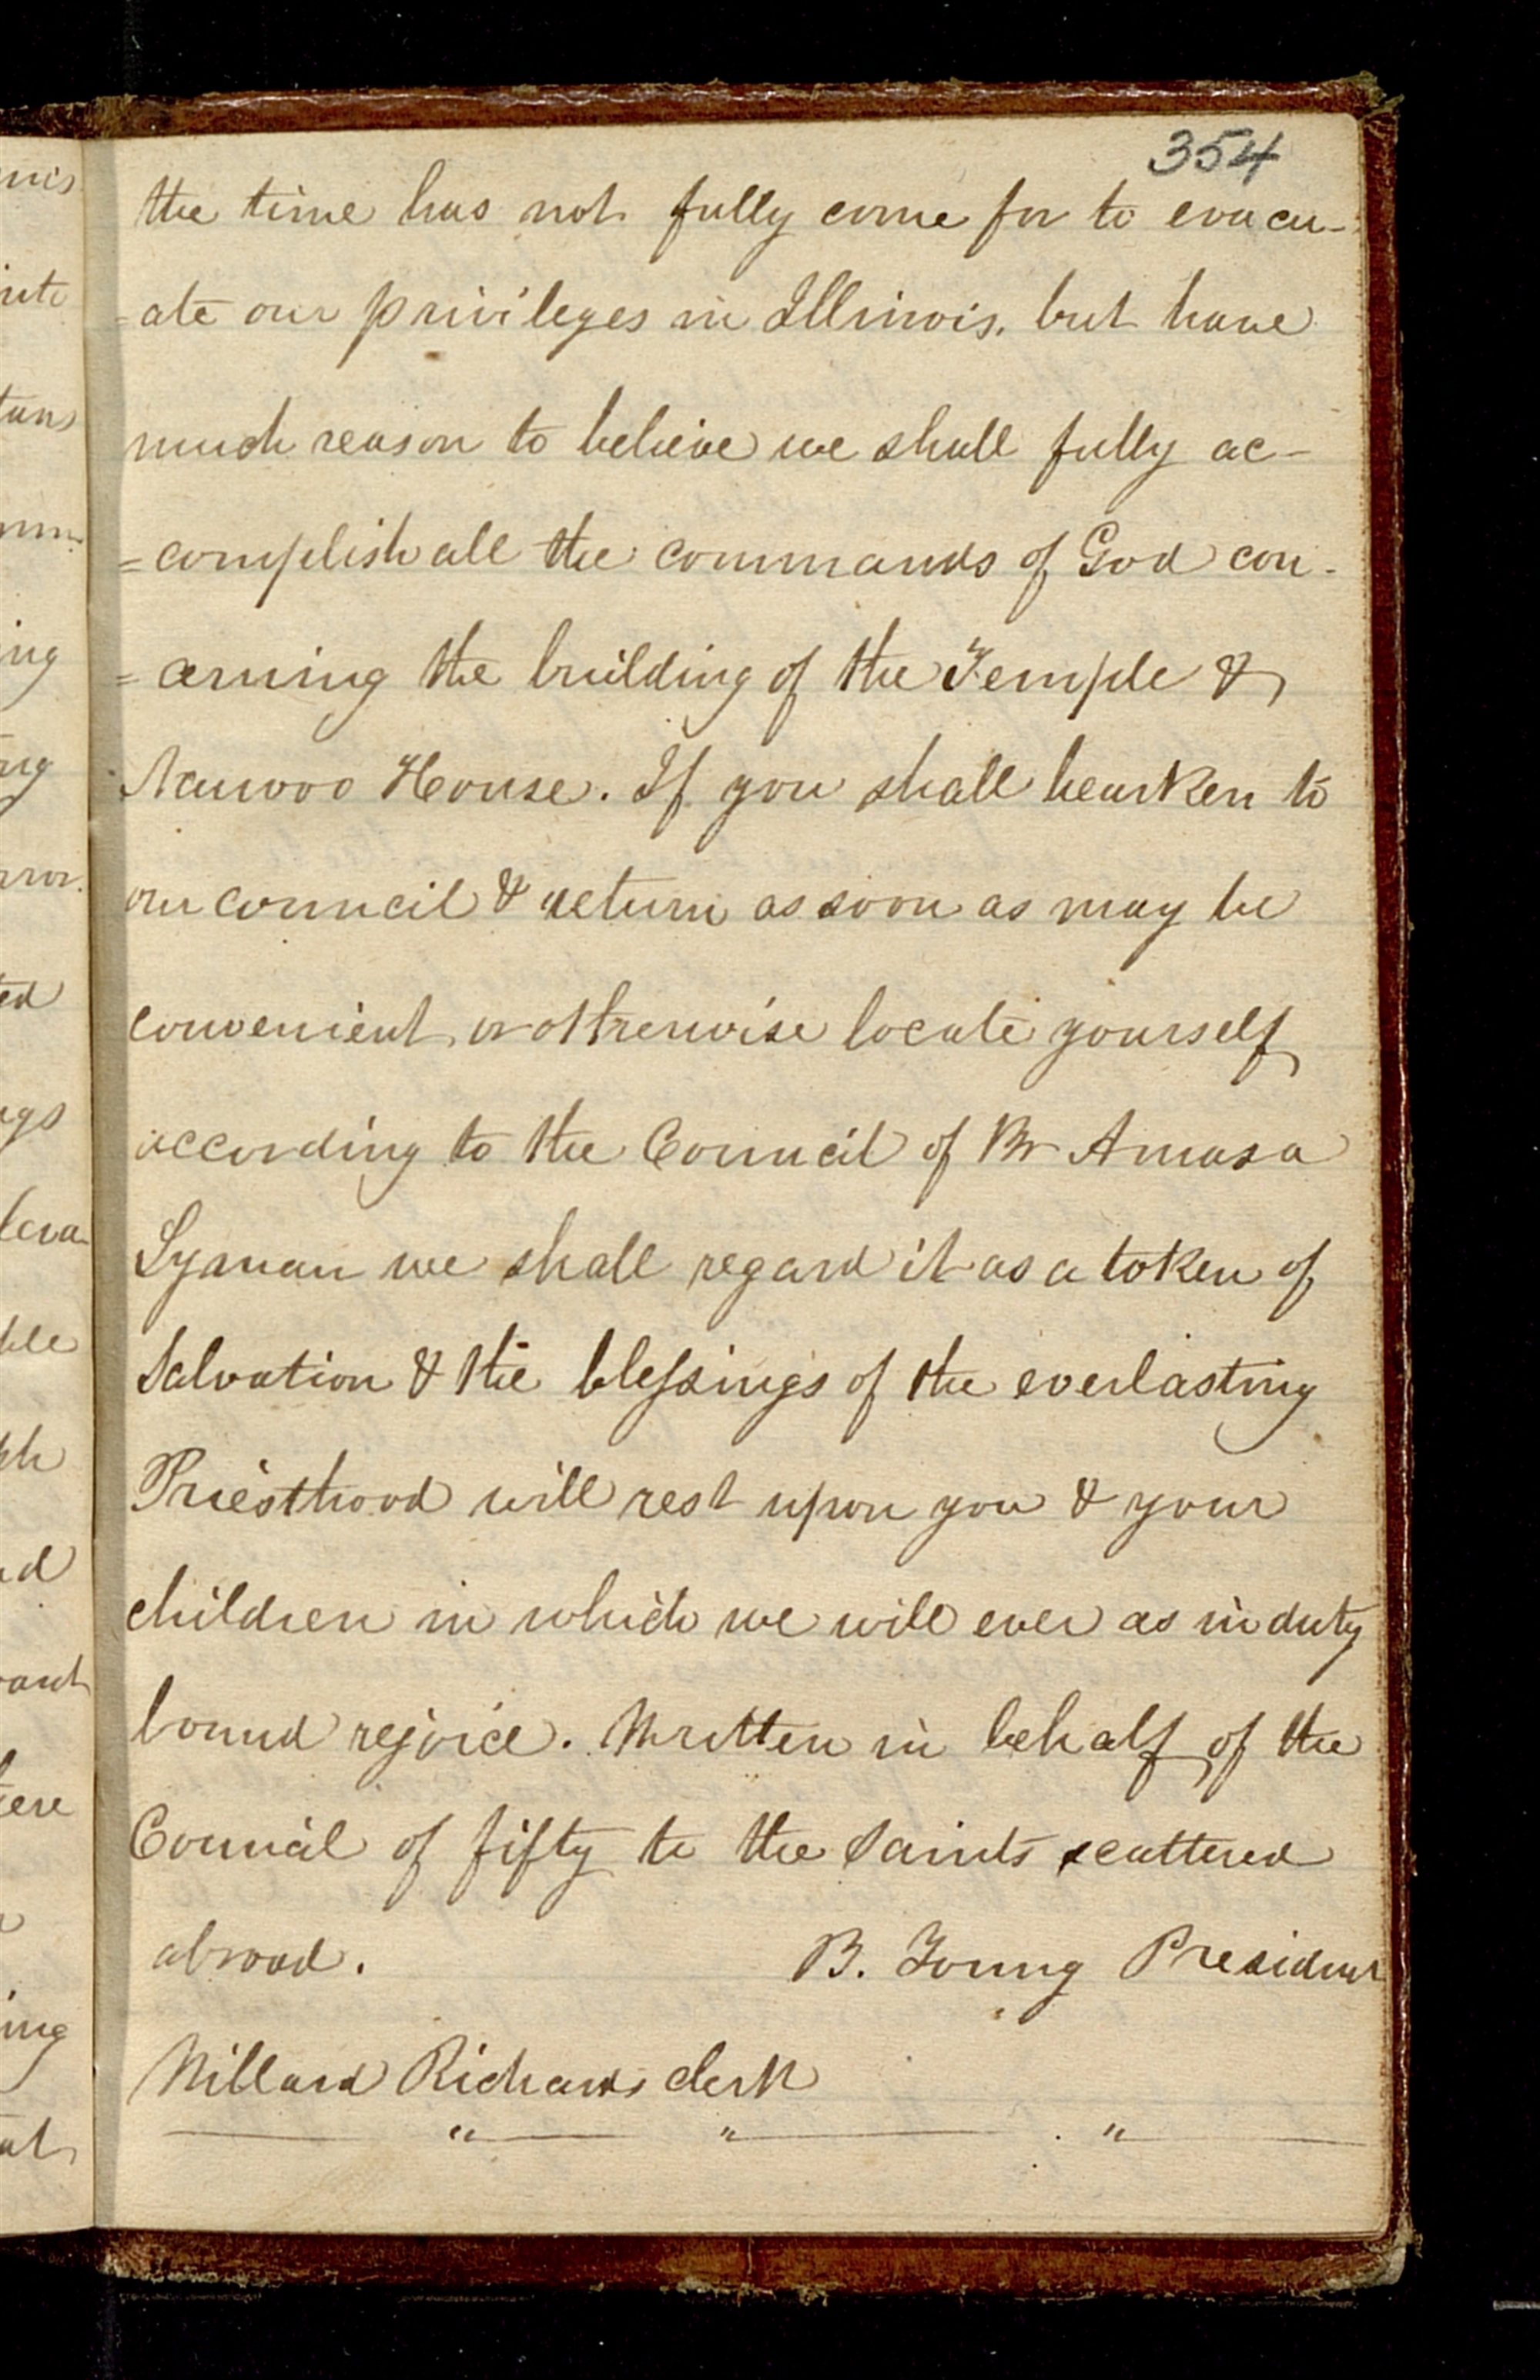 354
the time has not fully come for to evacu-
=ate our privileges in Illinois. but have
much reason to believe we shall fully ac-
=complish all the commands of God con-
=cerning the building of the Temple &
Nauvoo House. If you shall hearken to
our council & return as soon as may be
convenient, or otherwise locate yourself
according to the Council of Br Amasa
Lyman we shall regard it as a token of
Salvation & the blessings of the everlasting
Priesthood will rest upon you & your
children in which we will ever as in duty
bound rejoice. Written in behalf of the
Council of fifty to the Saints scattered
abroad. B. Young President
Willard Richards clerk
" " "